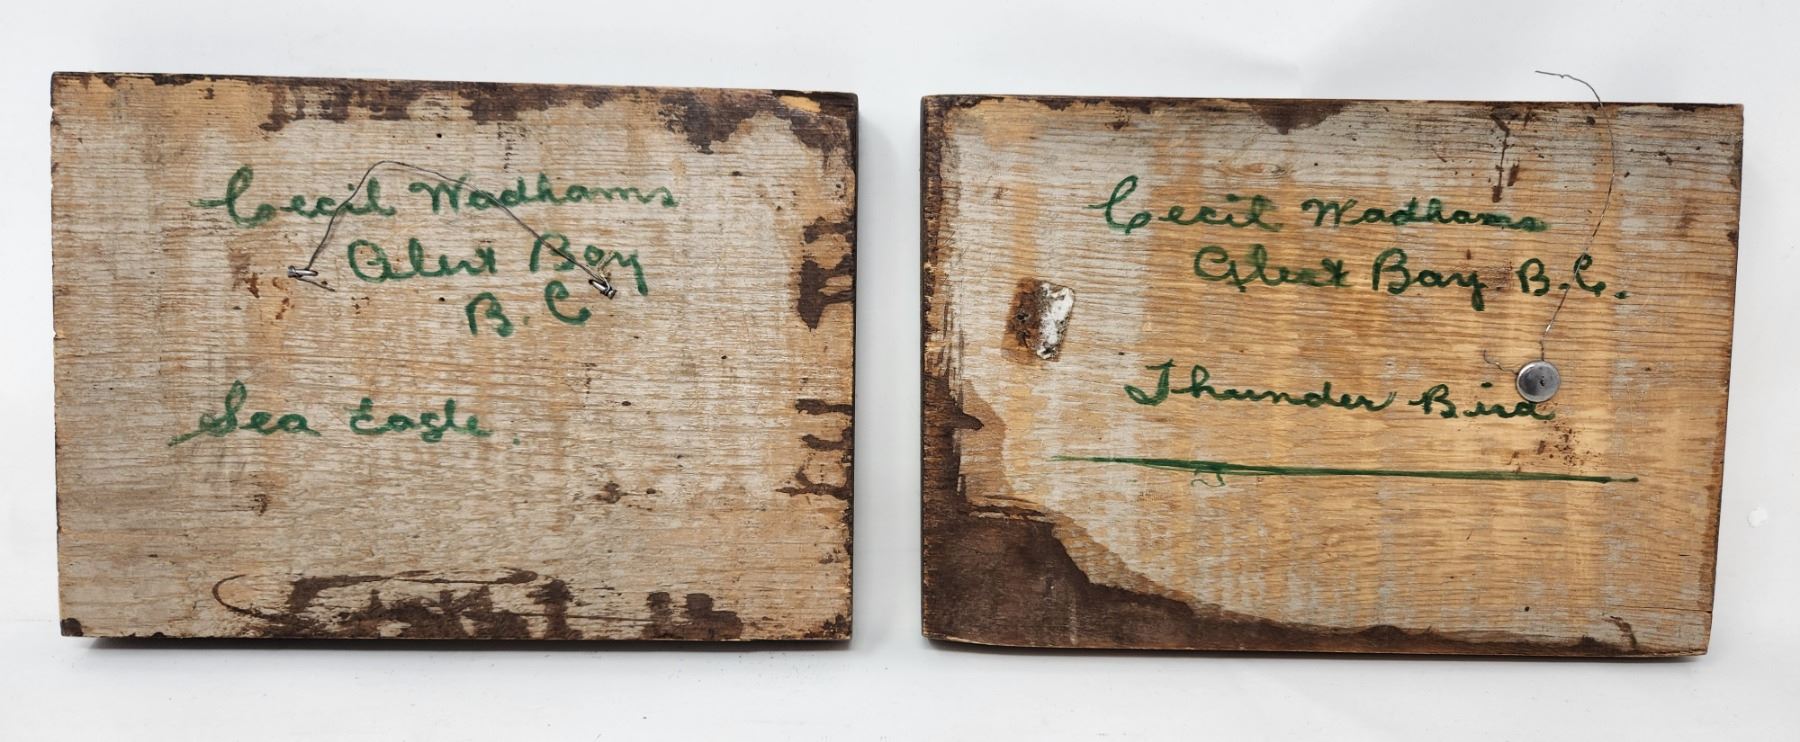 Cecil Wadhams
Alert Bay
B.C
Sea Eagle.
Cecil Wadhams
Alert Bay B.C.
Thunder Bird